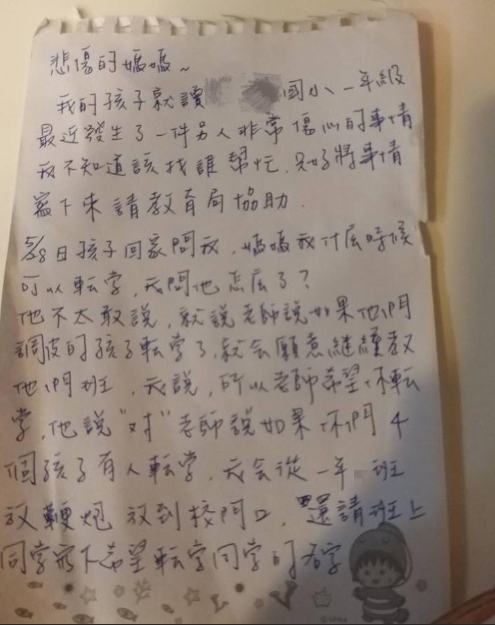 悲傷的媽媽~
我的孩子就讀 國小一年級
最近發生了一件另人非常傷心的事情
我不知道該找誰幫忙,只好將事情
寫下來請教育局協助.
5/28日孩子回家問我,媽媽我什底時候
可以転学,我問他怎底了?
他不太敢說,就說老師說如果他們
調皮的孩子転学了,就会願意継續教
他們班,我說,所以老師希望你転
学,他說"対"老師說如果你們4
個孩子有人転学,我会從一年 班
放鞭炮放到校門口,還請班上
同学寫下希望転学同学的名字